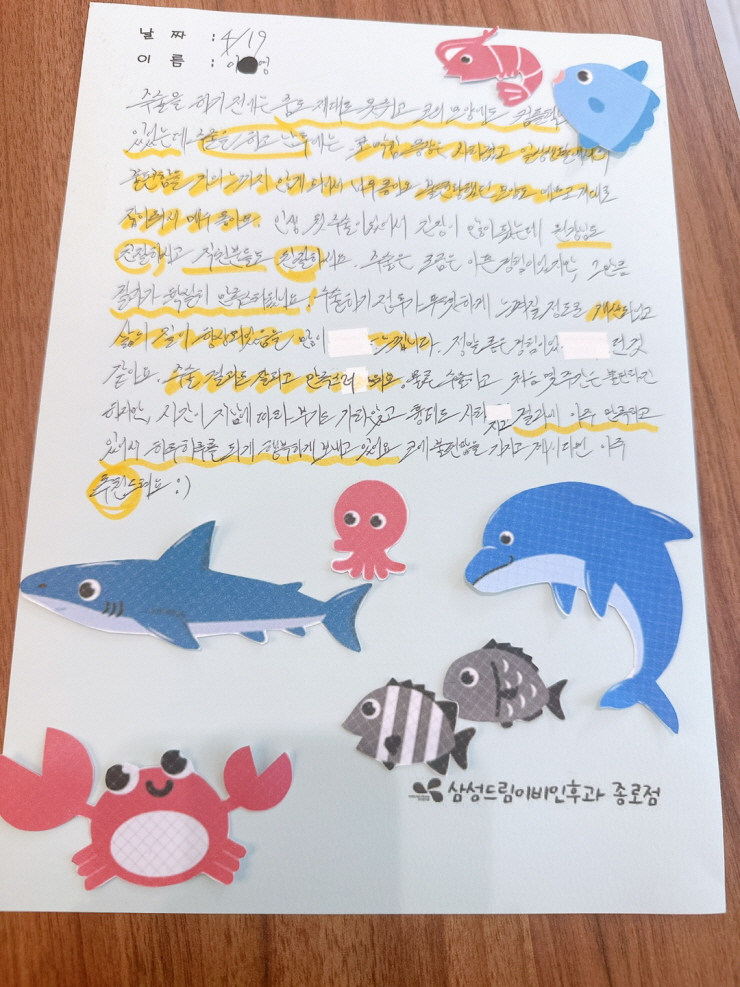 날 짜 : 4/19
이 름 : 이 영
수술을 하기 전에는 숨도 제대로 못쉬고 코의 모양에도 컴플렉
있었는데 수술을 하고 난 후에는 코 막힘 증상은 사라졌고 일상생활에서
불편함을 거의 느끼지 않게 되어서 너무 좋아요 불편했던 모양도 예쁘고 제대로
잡아져서 매우 좋아요. 인생 첫 수술이었어서 긴장이 많이 됐는데 원장님도
친절하시고 직원분들도 친절하세요. 수술은 조금은 아픈 경험이었지만, 그만큼
결과가 확실히 만족스러웠네요. 수술하기 전후가 뚜렷하게 느껴질 정도로 개선되었고
삶의 질이 향상되었음을 많이 느낍니다. 정말 좋은 경험이었 던 것
같아요. 수술 결과도 잘되고 만족스러 워요. 물론 수술이고 처음 몇 주간은 불편하긴
하지만, 시간이 지남에 따라 붓기도 가라앉고 통증도 사라 지고 결과에 아주 만족하고
있어서 하루하루를 되게 행복하게 보내고 있어요 코에 불편함을 가지고 계시다면 아주
추천드려요 :)
삼성드림이비인후과 종로점